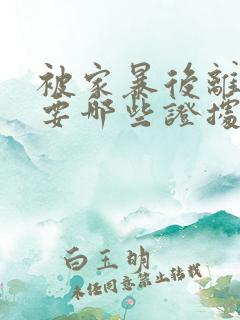 被家暴後離
要哪些證據
白玉明
未经同意禁止转载